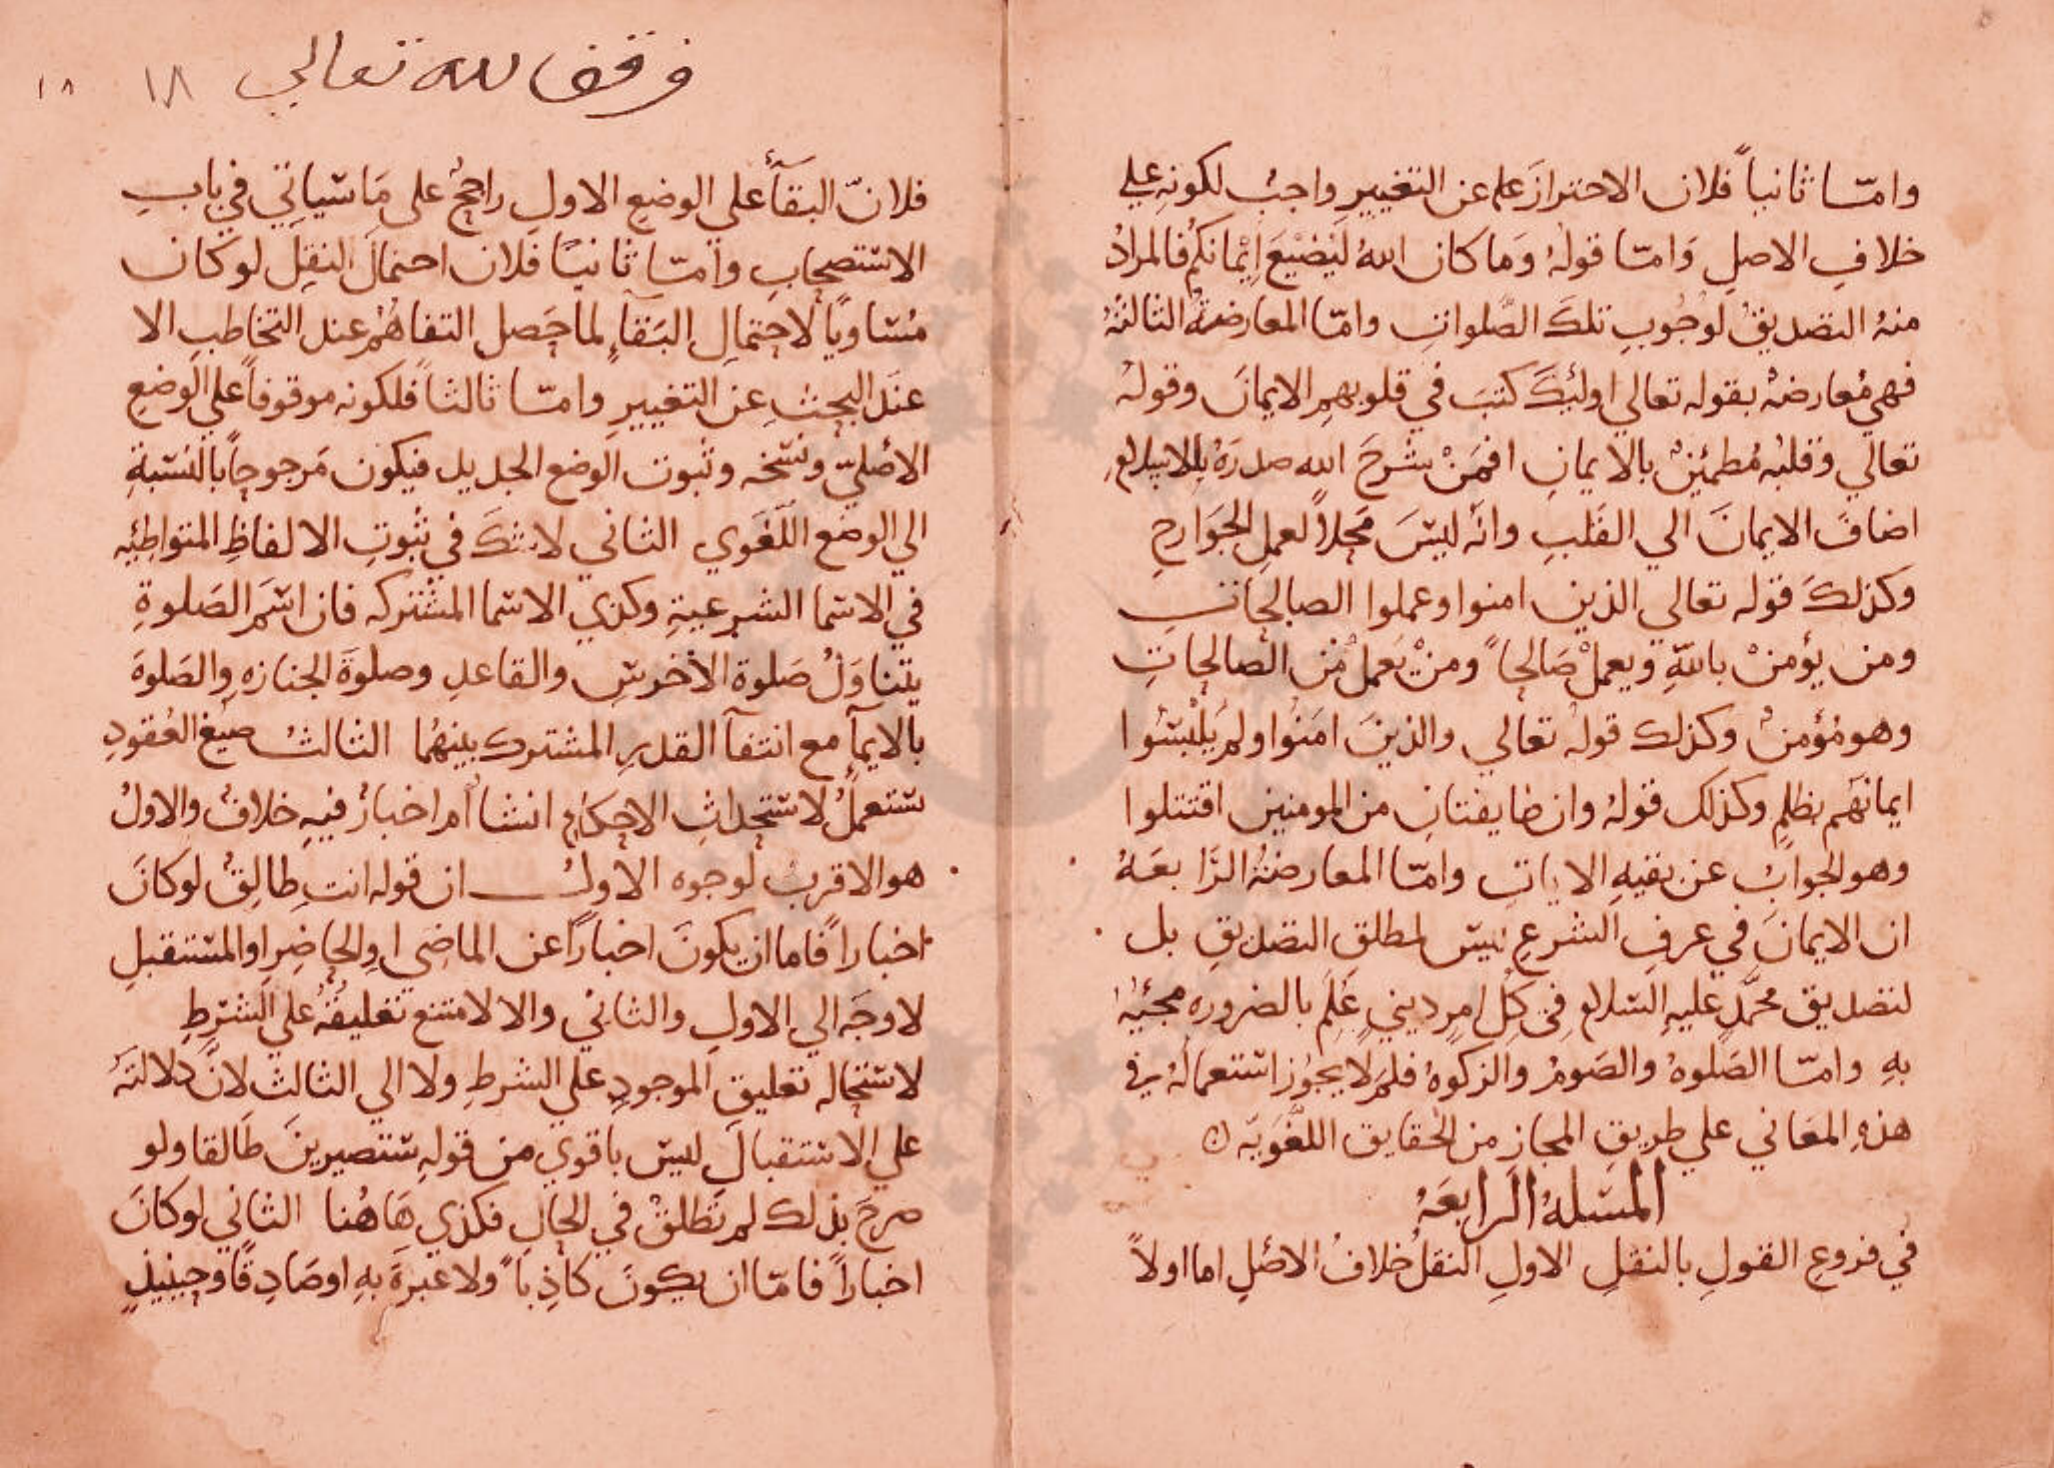 واما ثانياً فلان الاحتراز علم عن التغيير واجب لكونه على
خلافِ الاصلِ وَامّا قولهُ وَما كان اللهُ ليُضيْعَ اِيْمانكُم فالمرادُ
منهُ التصديقُ لوجُوبِ تلكَ الصَّلواتِ وامّا المعارضةُ الثالثهُ
فهي مُعارضهٌ بقوله تعالي اوليِكَ كتبَ في قلوبهمِ الايمانَ وقولهُ
تعالي وقلبُه مُطمئِنٌ بالايمانِ افمَنْ شرحَ الله صدرَهُ للاسلامِ
اضافَ الايمانَ الي القلبِ وانَّه ليْسَ مَحلاً لعملِ الجوَارحِ
وكذلكَ قوله تعالي الذين امنوا وعملوا الصالحاتِ
ومن يؤمنْ باللهِ ويعملْ صَالحاً ومنْ يَعملْ مْن الصالحاتِ
وهو مُؤمنٌ وكذلك قولهُ تعالي والذينَ امَنُوا ولم يَلْبسُوا
ايمانهَم بظلمٍ وكذلك قولهُ وان طايفتانِ من المومنين اقتتلوا
وهو الجوابُ عن بقيهِ الاياتِ وامّا المعارضةُ الرَّابعَهُ
ان الايمانَ في عرفِ الشرعِ ليسَ لمطلق التصديقِ بل
لتصديق محمَّدٍ عليهِ السَلام في كلِ امرٍ دينيٍ عُلمَ بالضروره مجئيهُ
بهِ وامّا الصَلوهُ والصَومُ والزكوهُ فلمَ لا يجوُز استعمالهُ في
هذهِ المعَاني علي طريقِ المجاز من الحقايق اللغَويّه
المسَلهُ الرابعَهُ
في فروعِ القولِ بالنقلِ الاولِ النقلُ خلافُ الاصْلِ اما اولاً
وقف لله تعالي ١٨ ١٨
فلانّ البقآءَ علي الوضعِ الاولِ راجحٌ على مَا سَياتي في بابِ
الاسْتصحابِ وامّا ثانيًا فلان احتمالَ النقلِ لو كان
مُسَاويًا لاحتمالِ البَقآءِ لما حَصل التفاهُم عند التخاطبِ الا
عندَ البحثِ عن التغييرِ وامّا ثالثاً فلكونه موقوفاً علي الوضعِ
الاصْليّ ونسْخه وثبوت الوضع الجديد فيكون مَرجوحاً بالنسَبةِ
الي الوضع اللغَوي الثاني لا شكَ في ثبُوتِ الالفاظِ المتواطِئِه
في الاسَما الشرعيةِ وكذي الاسْما المشتركه فان اسَم الصَلوةِ
يتناوَلُ صَلوة الاخرسِ والقاعدِ وصلوةَ الجنازهِ والصَلوةَ
بالايمآءِ مع انتفآ القدرِ المشتركِ بينهُما الثالثُ صيَغ العُقودِ
ستعملُ لاسْتحداثِ الاحكامِ انشاءٌ ام اخبارٌ فيهِ خلافٌ والاولُ
هو الاقربُ لوجوه الاولُ ان قوله انتِ طالِقٌ لو كانَ
اخباراً فاما ان يكونَ اخباراً عن الماضِي اوِ الحاضِر او المسْتقبلِ
لا وجَه الي الاولِ والثاني والا لامتنع تعليقُهُ علي الشرَطِ
لاسْتحاله تعليق الموجودِ علي الشرطِ ولا الي الثالث لانَّ دلالتَهُ
علي الاسْتقبالِ ليسَ باقوي من قولهِ سَتصيرينَ طَالقا ولو
صرحَ بذلك لم تَطلقْ في الحالِ فكذي هَاهُنا الثاني لو كانَ
اخباراً فامّا ان يكونَ كاذِباً ولا عبرةَ بهِ او صَادِقًا وحِينيذٍ